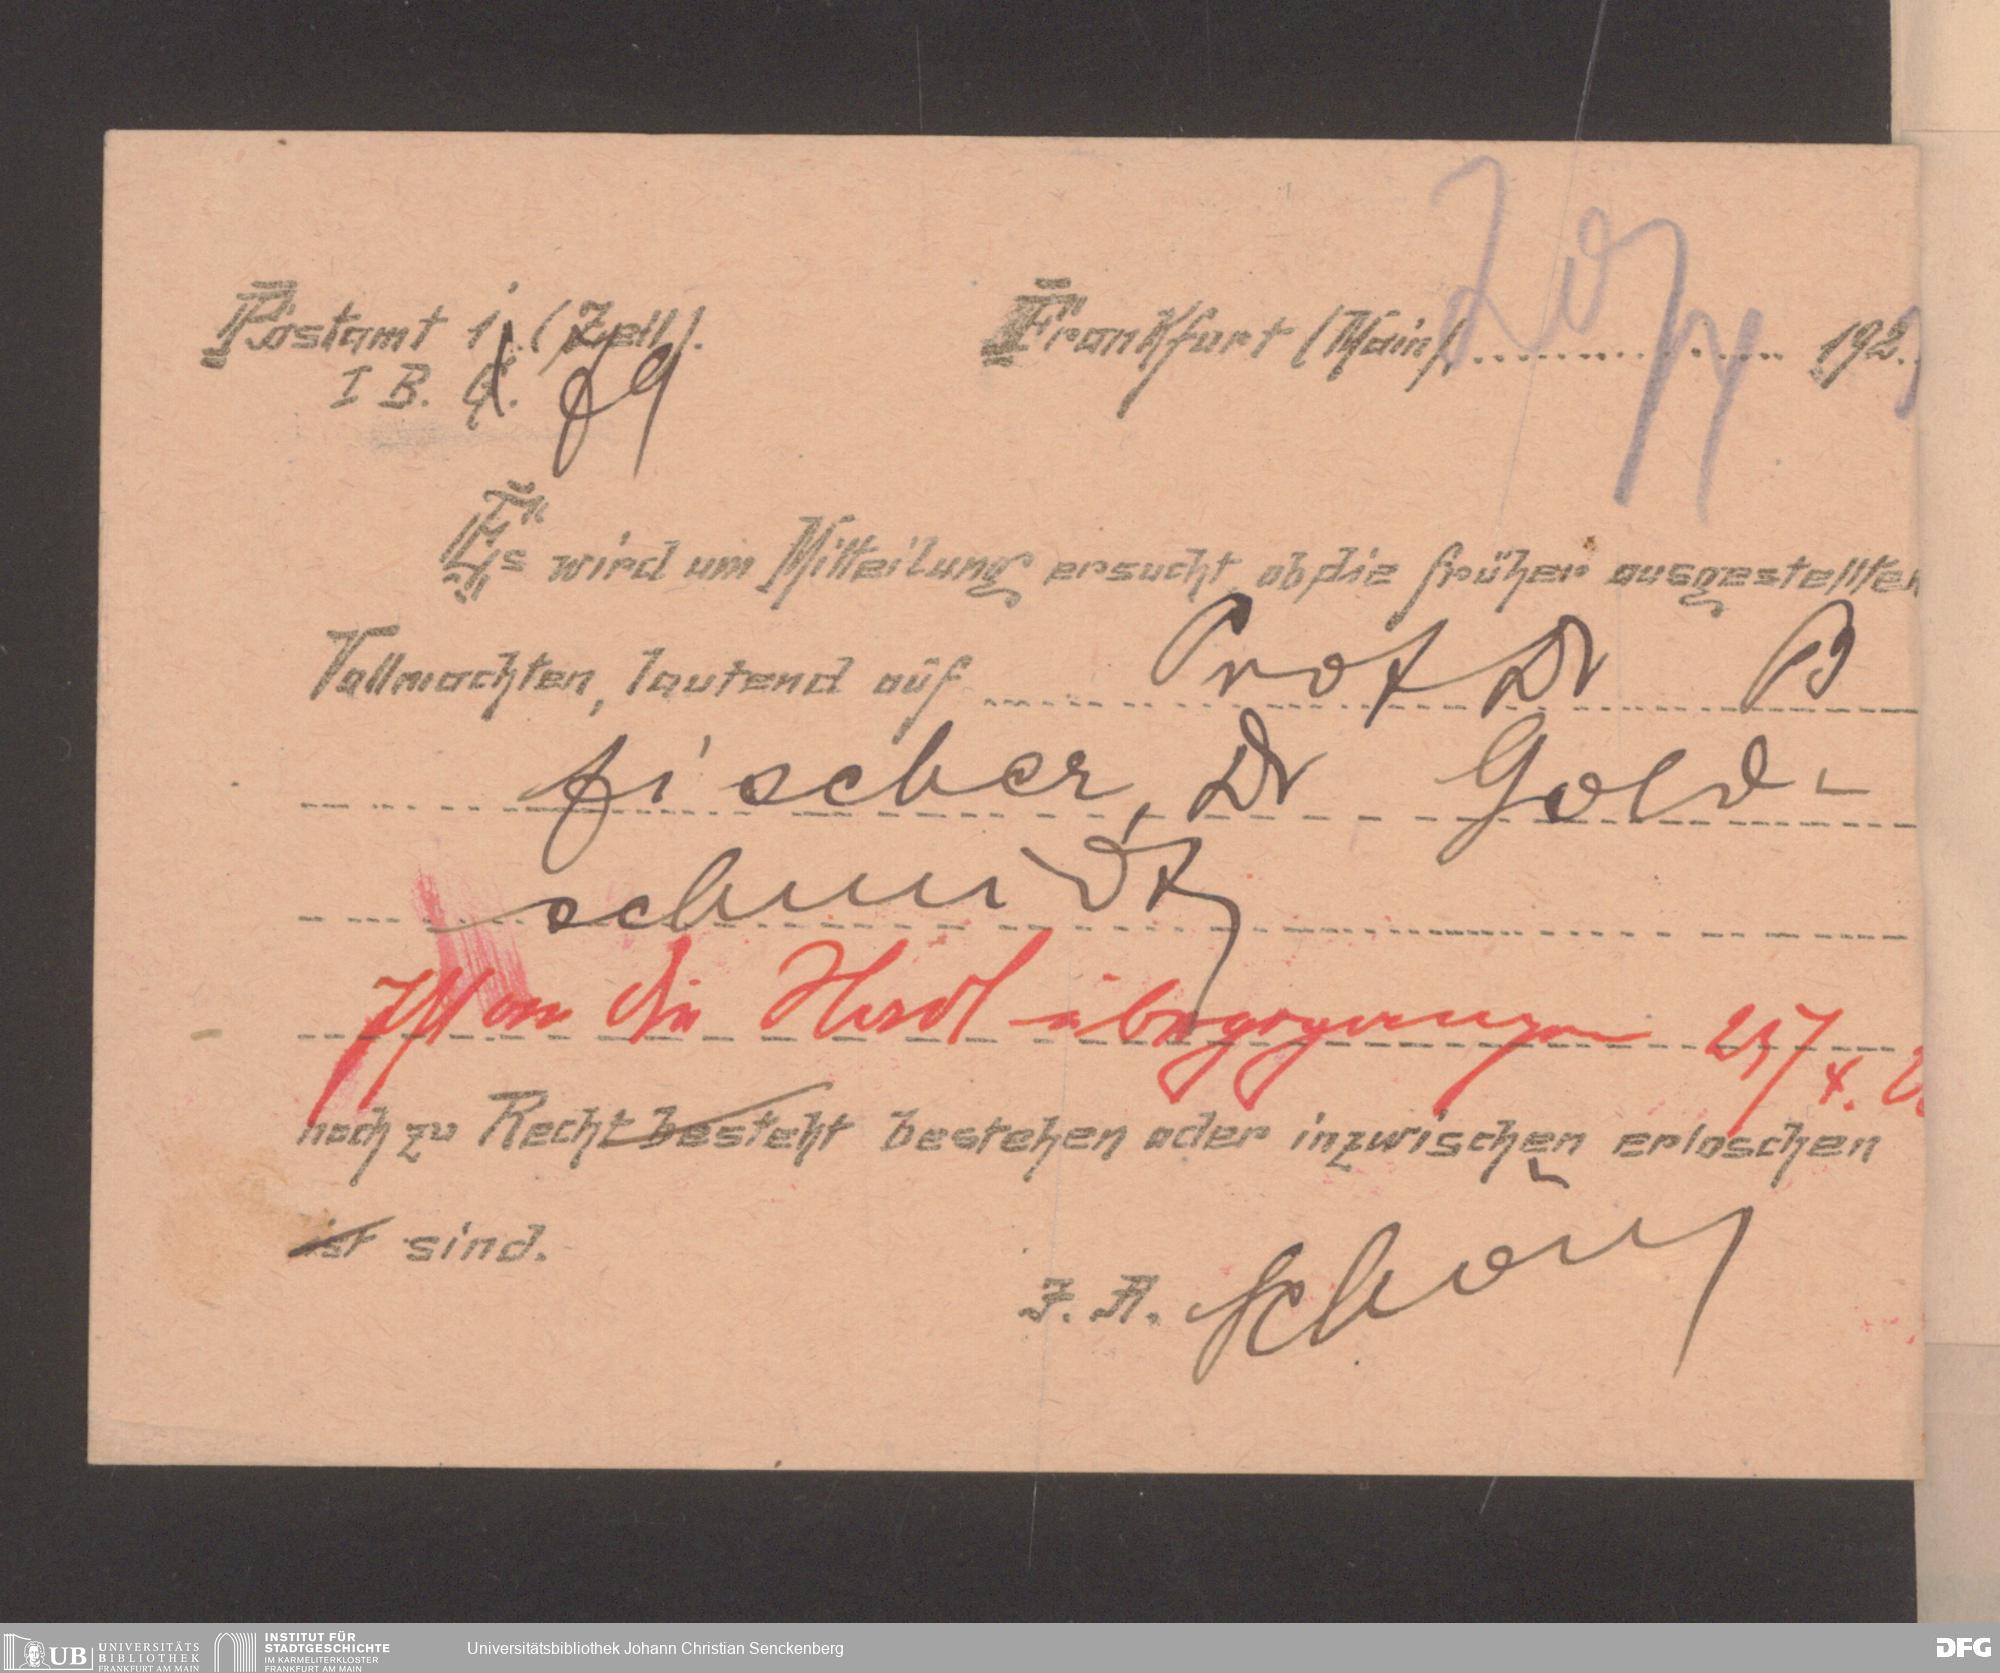 Postamt 1 (Zeil). Frankfurt (Main) 20/4 192.
I B. G. 79
Es wird um Mitteilung ersucht, ob die früher ausgestellten
Vollmachten, lautend auf Prof Dr B
fischer, Dr Gold-
schmidt
an die Stadt übergegangen 25/
noch zu Recht besteht bestehen oder inzwischen erloschen
ist sind.
J. A. Schön
UB UNIVERSITÄTS
BIBLIOTHEK
FRANKFURT AM MAIN
INSTITUT FÜR
STADTGESCHICHTE
IM KARMELITERKLOSTER
FRANKFURT AM MAIN
Universitätsbibliothek Johann Christian Senckenberg
DFG